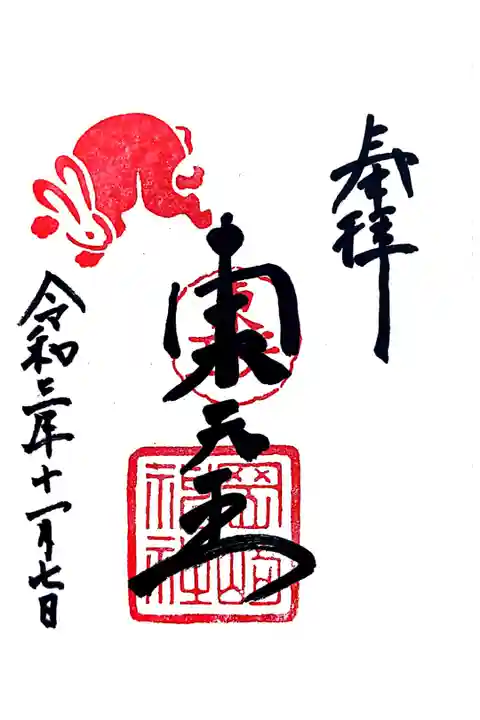 奉拝
東天王
岡崎神社
令和三年十一月七日